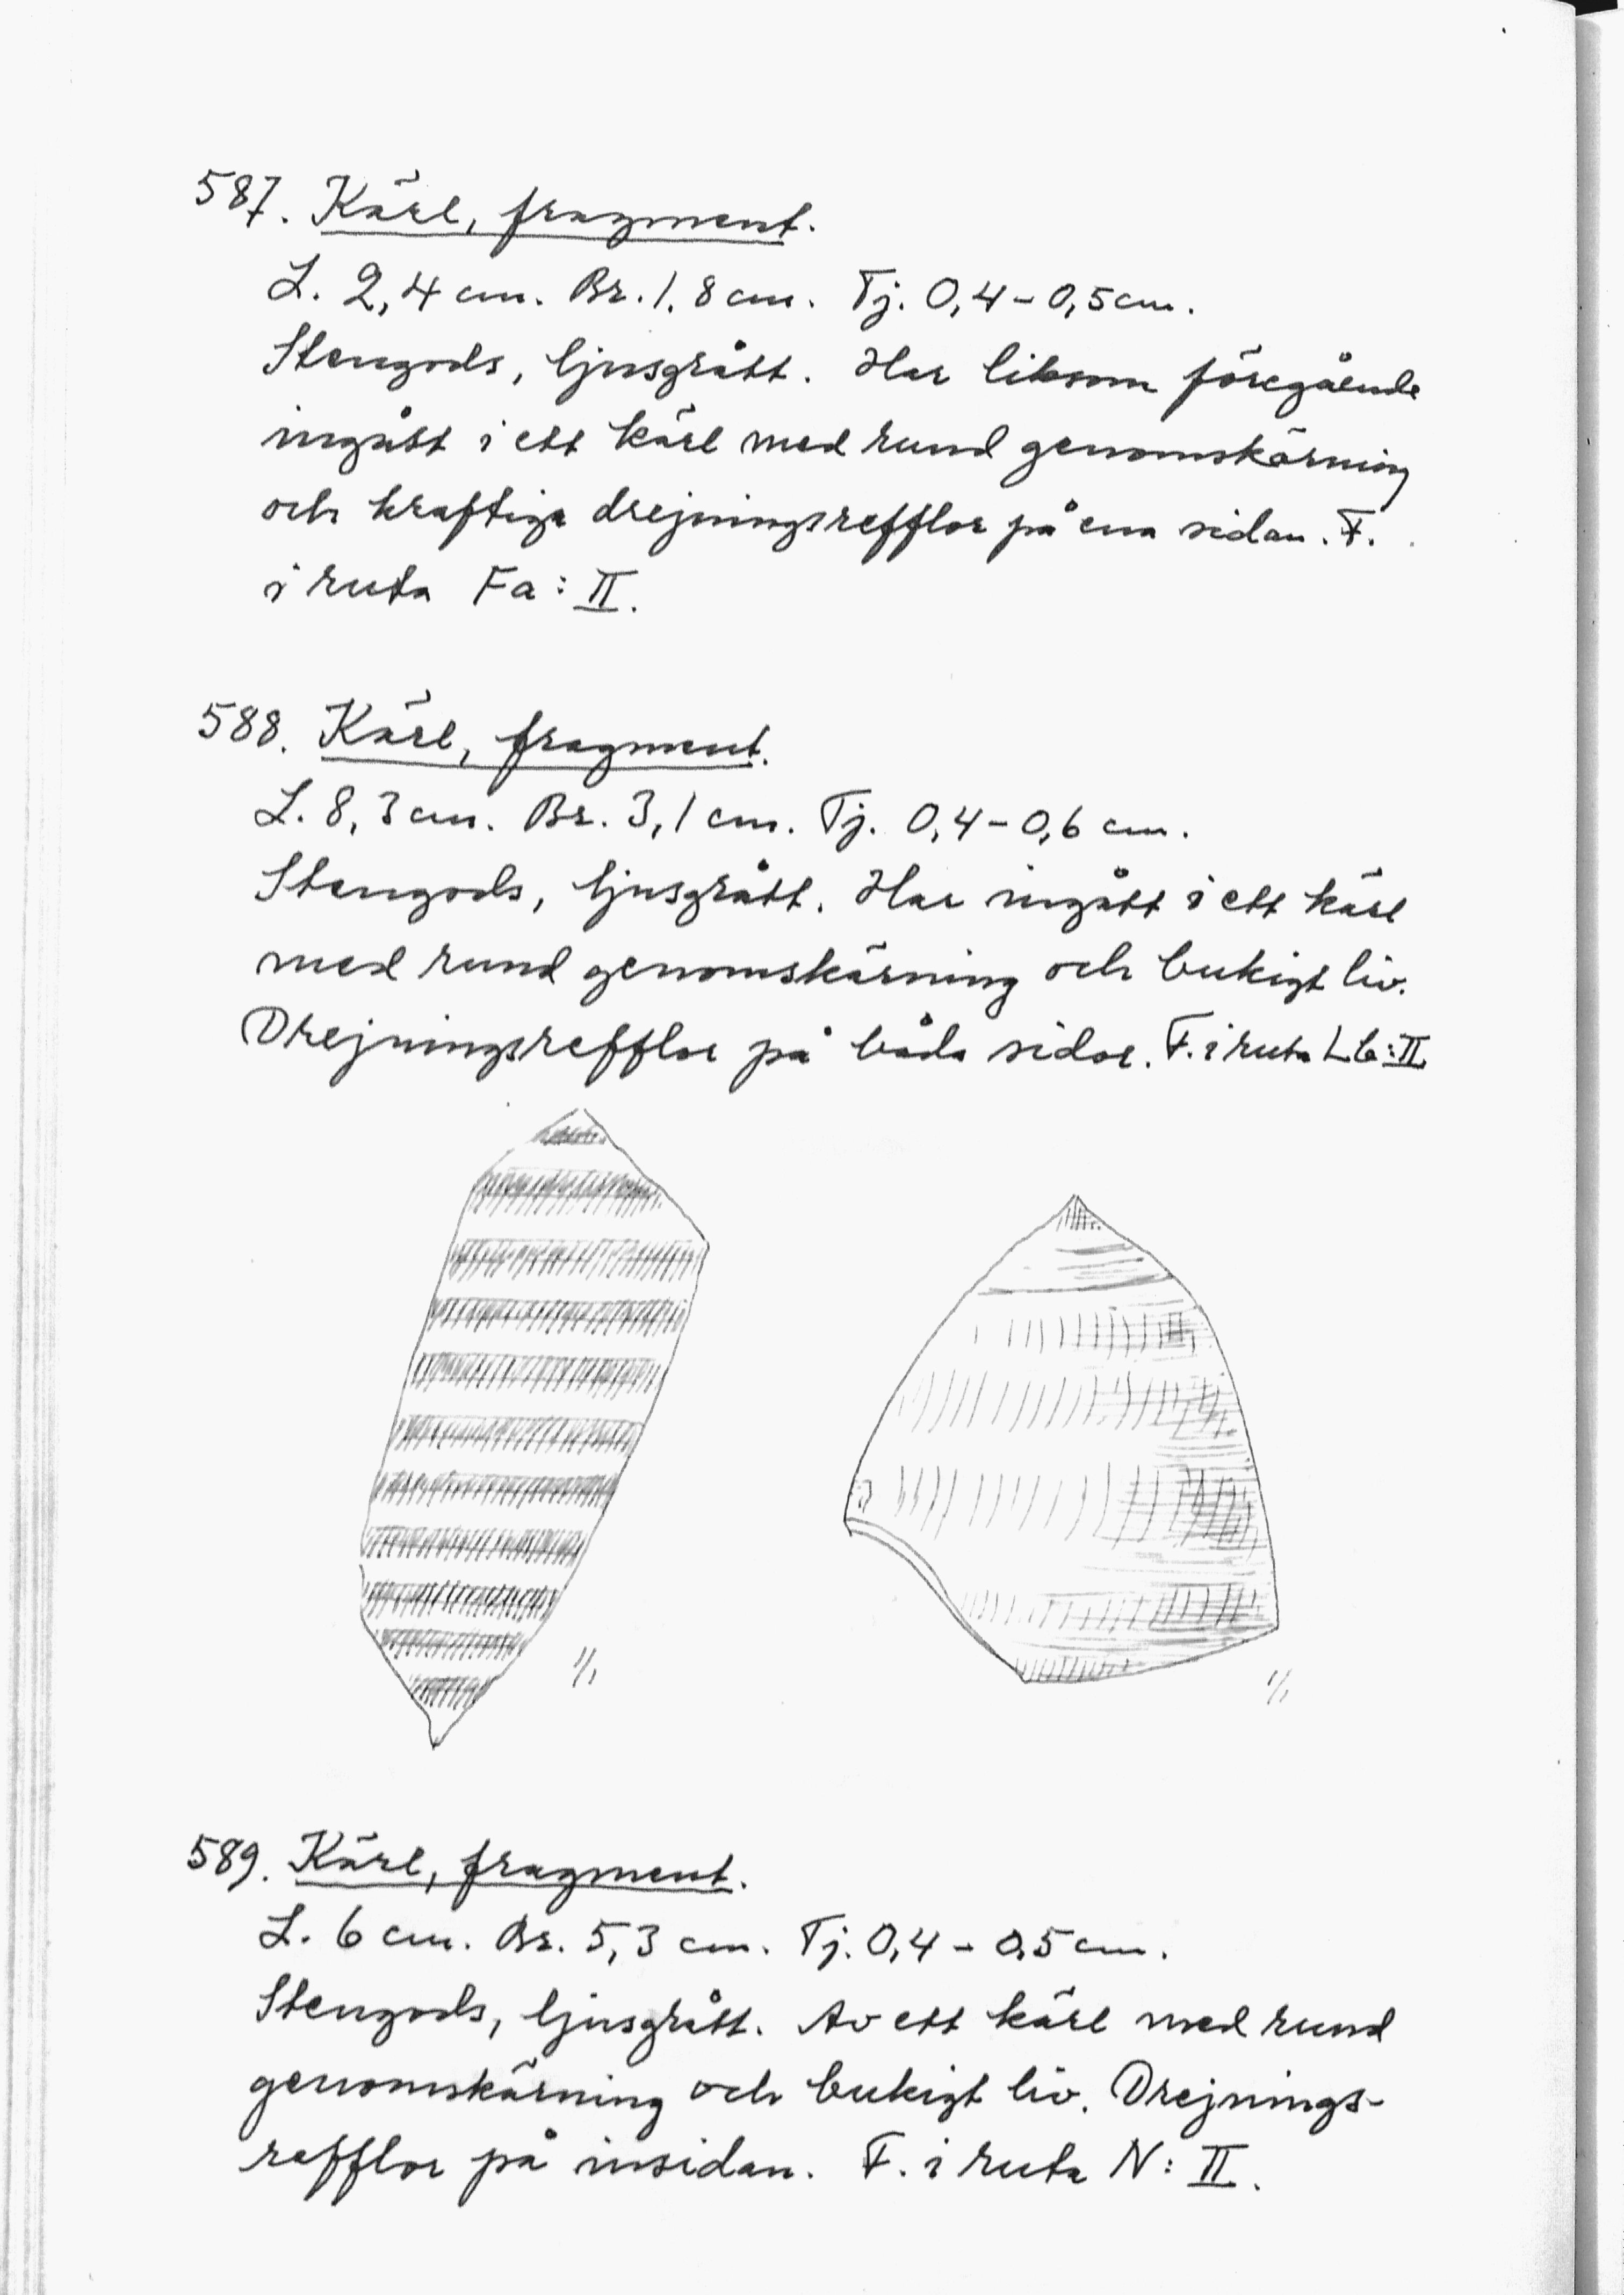 587. Kärl, fragment.
L. 2,4 cm. Br. 1,8 cm. Tj. 0,4 - 0,5 cm.
Stengods, ljusgrått. Har liksom föregående
ingått i ett kärl med rund genomskärning
och kraftiga drejningsrefflor på ena sidan. F.
i ruta Fa: II.
588. Kärl, fragment.
L. 8,3 cm. Br. 3,1 cm. Tj. 0,4 - 0,6 cm.
Stengods, ljusgrått. Har ingått i ett kärl
med rund genomskärning och bukigt liv.
Drejningsrefflor på båda sidor. F. i ruta Lb: II
1/1
1/1
589. Kärl, fragment.
L. 6 cm. Br. 5,3 cm. Tj. 0,4 - 0,5 cm.
Stengods, ljusgrått. Av ett kärl med rund
genomskärning och bukigt liv. Drejnings-
refflor på insidan. F. i ruta N: II.